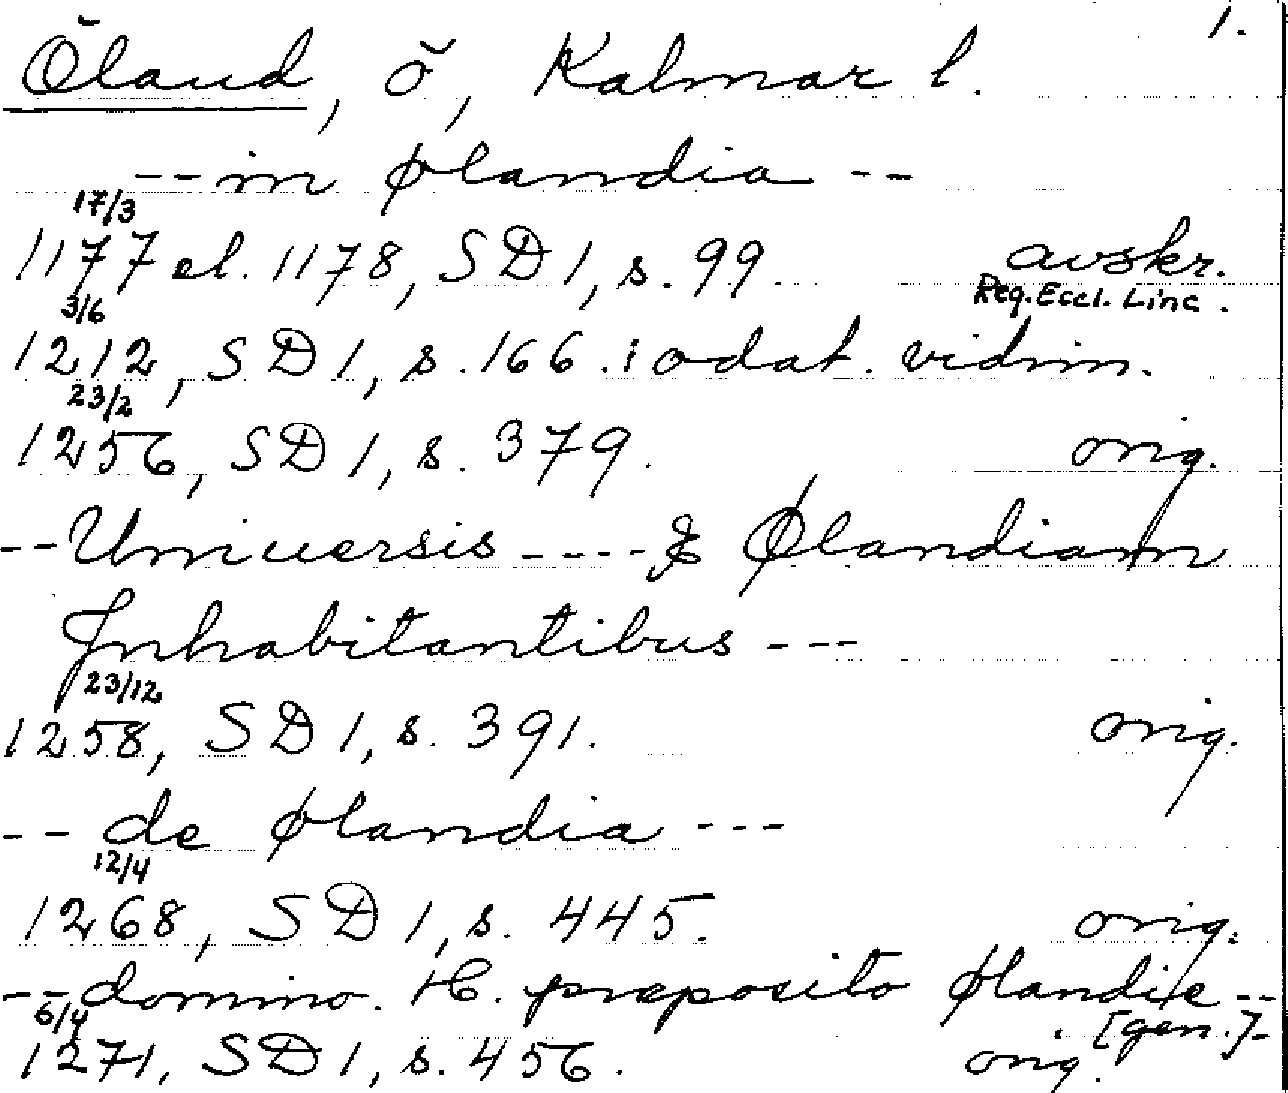 1.
Öland, ö, Kalmar l.
-- in Ølandia --
17/3
1177 el. 1178, SD 1, s. 99. avskr.
Reg. Eccl. Linc.
3/6
1212, SD 1, s. 166. i odat. vidim.
23/2
1256, SD 1, s. 379. orig.
-- Uniuersis ---- & Ølandiam
Inhabitantibus ---
23/12
1258, SD 1, s. 391. orig.
-- de Ølandia ---
12/4
1268, SD 1, s. 445. orig.
-- domino. H. preposito Ølandie --
5/4 [gen.]-
1271, SD 1, s. 456. orig.